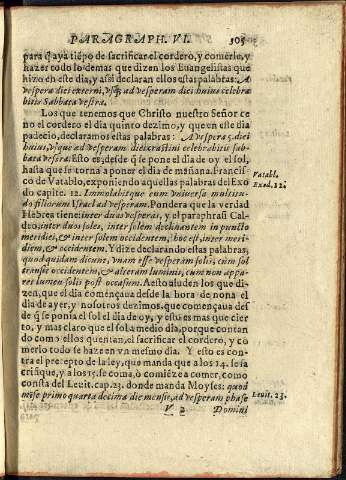 PARAGRAPH. VI. 305
para q̃ aya tiẽpo de sacrificar el cordero, y comerlo, y
hazer todo lo demas que dizen los Euangelistas que
hizo en este dia, y assi declaran ellos estas palabras: A
vespera diei externi, vsq; ad vesperam diei huius celebra
bitis Sabbata vestra.
Los que tenemos que Christo nuestro Señor ce
nò el cordero el dia quinto dezimo, y que en esse dia
padecio, declaramos estas palabras: A vespera diei
huius, vsque ad vesperam diei crastini celebrabitis sab-
bata vestra: Esto es, desde q̃ se pone el dia de oy el sol,
hasta que se torna a poner el dia de mañana. Francis-
co de Vatablo, exponiẽdo aquellas palabras del Exo
do capite. 12. Immolabitque eum vniuersa multitu-
do filiorum Israel ad vesperam. Pondera que la verdad
Hebrea tiene: inter duas vesperas, y el paraphrasti Cal-
deo, inter duos soles, inter solem declinantem in puncto
meridiei, & inter solem occidentem, hoc est, inter meri-
diem, & occidentem. Y dize declarando estas palabras,
quod quidam dicunt, vnam esse vesperam solis, cum sol
transijt occidentem, & alteram luminis, cum non appa-
ret lumen solis post occasum. A esto aluden los que di-
zen, que el dia començaua desde la hora de nona el
dia de ayer, y nosotros dezimos, que començaua des
de q̃ se ponia el sol el dia de oy, y esto es mas que cier
to, y mas claro que el sol a medio dia, porque contan
do como ellos quentan, el sacrificar el cordero, y co
merlo todo se haze en vn mesmo dia. Y esto es con-
tra el precepto de la ley, que manda que a los 14. se sa
crifique, y a los 15. se coma, ò comiẽze a comer, como
consta del Leuit. cap. 23. donde manda Moyses: quod
mẽse primo quarta decima die mensis, ad vesperam phase
V 2 Domini
Vatabl.
Exod. 12.
Leuit. 23.